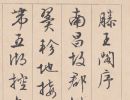 滕王閣序
南昌故郡
翼軫地接
帶五湖控